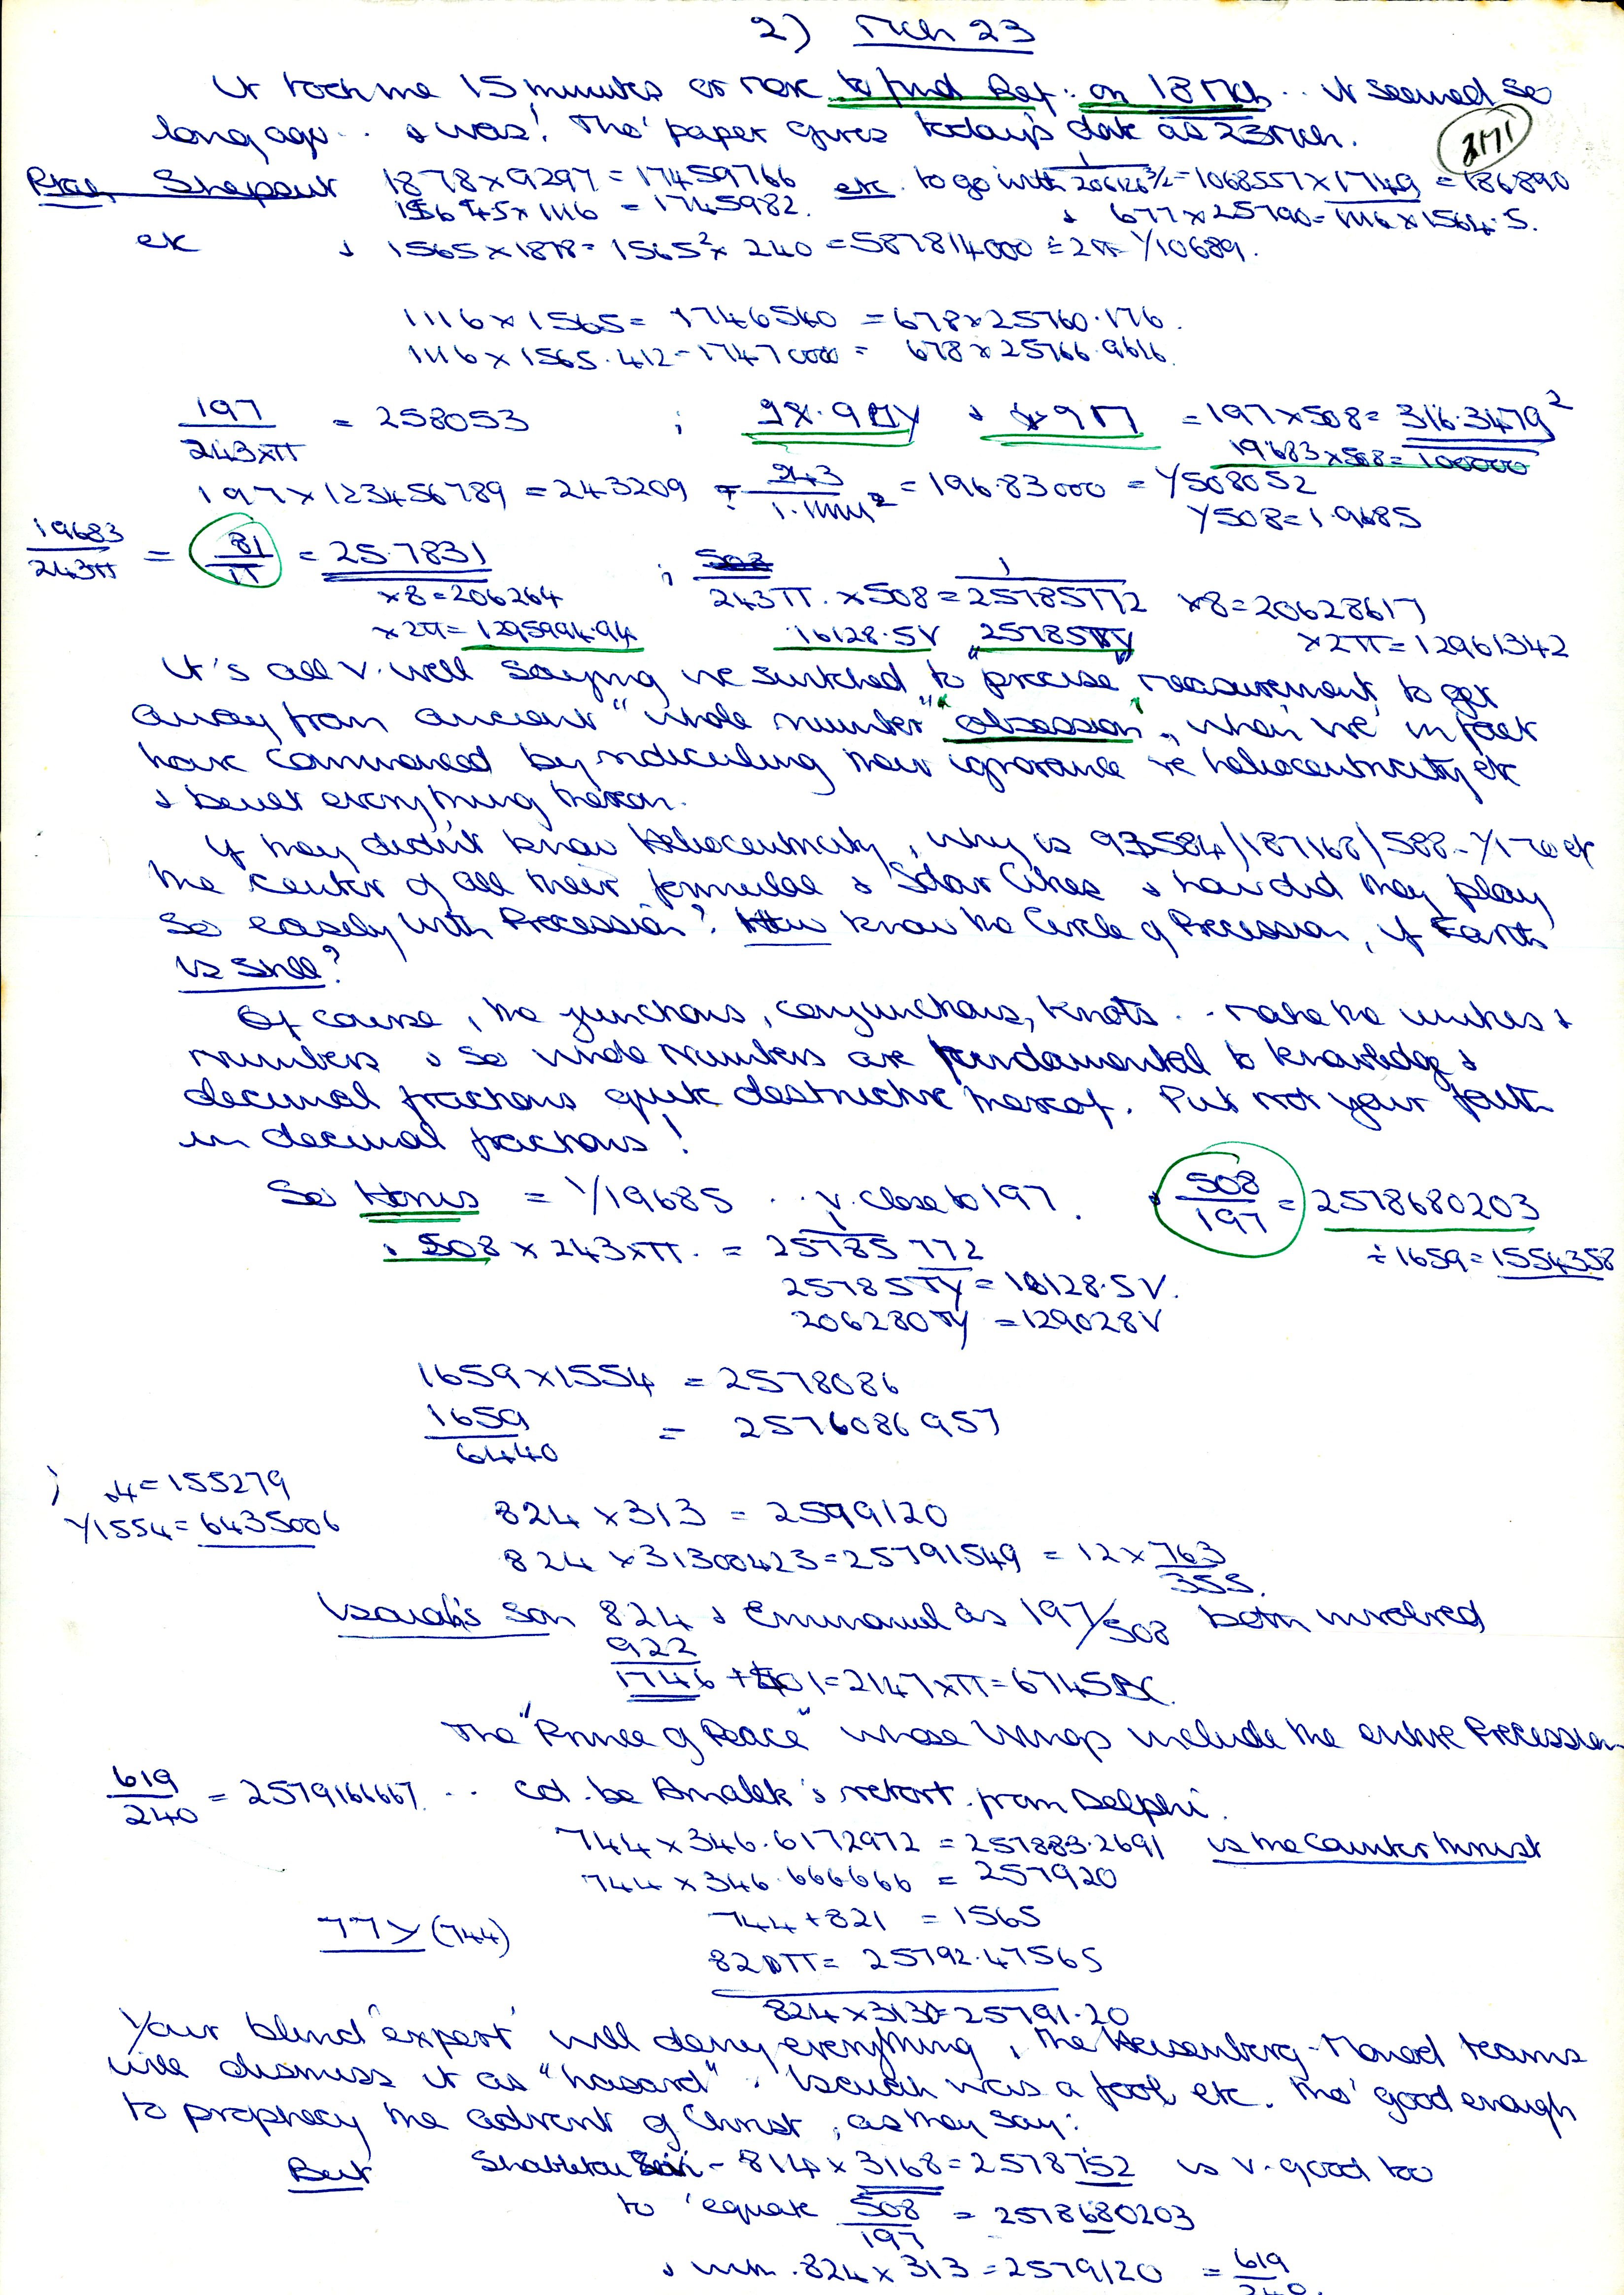 2) Mch 23
It took me 15 minutes or more to find Ref: on 18 Mch .. it seemed so
long ago .. & was! Tho' paper gives today's date as 23 Mch.
2171
1878 x 9297 = 17459766 etc. to go with 1/206126 3/2 = 1068557 x 1749 = 186890
1564.5 x 1116 = 1745982. & 677 x 25790 = 1116 x 1564.5.
etc & 1565 x 1878 = 1565² x 240 = 587814000 ÷ 2π = Y10689.
1116 x 1565 = 1746540 = 678 x 25760.176.
1116 x 1565.412 = 1747000 = 678 x 25766.9616.
197/243xπ = 258053 ; = 197 x 508 = 316.3479²
19683 x 508 = 100000
197 x 123456789 = 243209 ÷ 243/1.1111² = 196.83000 = Y508052
Y508 = 1.9685
19683/243π = 81/π = 25.7831 ; 243π. x 508 = 1/25785772 x8 = 20628617
x8 = 206264
x2π = 1295994.94 16128.5V "25785πy" x2π = 12961342
It's all v. well saying we switched to "precise" measurement, to get
away from ancient "whole number" "obsession", when we in fact
have commenced by ridiculing their ignorance re heliocentricity etc
& bever everything thereon.
If they didn't know Heliocentricity, why is 93584/187168/588-Y170 etc
the center of all their formulae & Solar Cities & how did they play
so easily with Precession? How know the Circle of Precession, if Earth
is still?
Of course, the junctions, conjunctions, knots .. make the unities &
numbers & so whole numbers are fundamental to knowledge &
decimal fractions quite destructive thereof. Put not your faith
in decimal fractions!
So Horus = Y19685 .. v. close to 197. & 508/197 = 2578680203
& 508 x 243xπ. = 1/25785772 ÷1659 = 1554358
25785πy = 16128.5V.
206280πy = 129028V
1659 x 1554 = 2578086
1659/6440 = 2576086957
; .4 = 155279
Y1554 = 6435006
824 x 313 = 2579120
824 x 31300423 = 25791549 = 12 x 763/355.
Isaiah's son 824 & Emmanuel as 197/508 both involved
922
1746 + 401 = 2147 x π = 6745 BC.
The "Prince of Peace" whose Wings include the entire Precession
619/240 = 257916667. .. cd. be Amalek's retort from Delphi.
744 x 346.6172972 = 257883.2691 is the Counter thrust
744 x 346.666666 = 257920
77y (744) 744 + 821 = 1565
821π = 25792.47565
824 x 3130 = 25791.20
Your blind 'expert' will deny everything, the Heisenberg-Monod teams
will dismiss it as "hasard". Isaiah was a fool etc. tho' good enough
to prophecy the advent of Christ, as they say:
But - 814 x 3168 = 2578752 is v. good too
to 'equate 508/197 = 2578680203
& with .824 x 313 = 2579120 = 619/240.